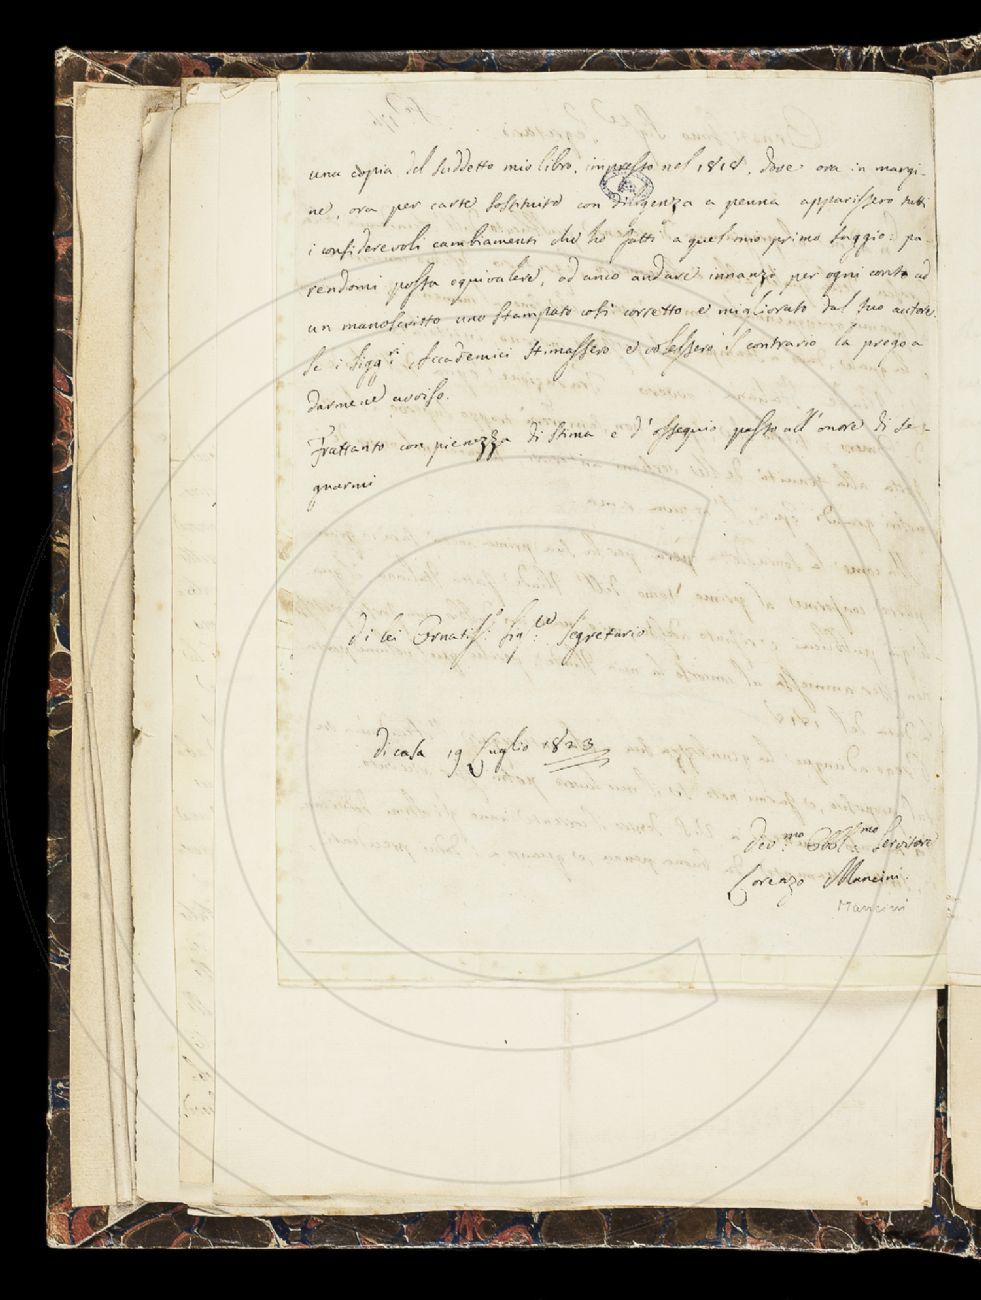 una copia del suddetto mio libro, impresso nel 1818, dove ora in margi-
ne, ora per carte sostituite con diligenza a penna apparissero tutti
i considerevoli cambiamenti che ho fatti a quel mio primo saggio: pa-
rendomi possa equivalere, ed anco andare innanzi per ogni conto ad
un manoscritto uno stampato così corretto e migliorato dal suo autore.
Se i Sigg.ri Accademici stimassero e volessero il contrario la prego a
darmene avviso.
Frattanto con pienezza di stima e d'ossequio passo all'onore di se-
gnarmi
di lei Ornatiss. Sig.re Segretario
di casa 19 Luglio 1823
Dev.mo Obbl.mo Servitore
Lorenzo Mancini.
Mancini